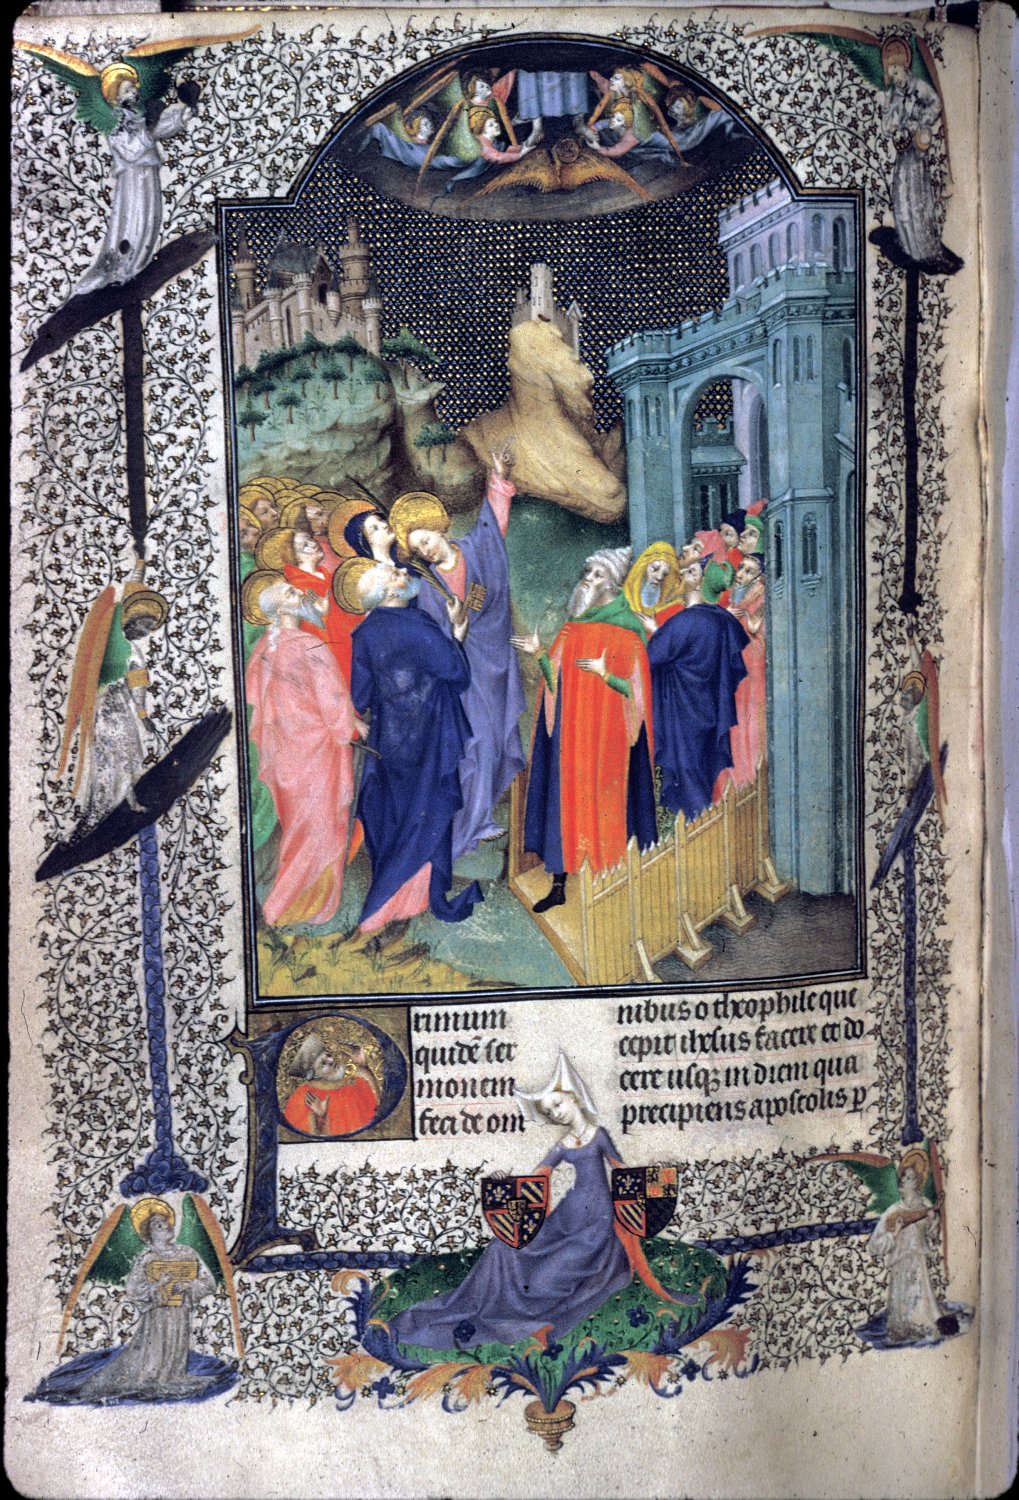 rimum
quidē ser
monem
feci de om
nibus o theophile que
cepit ihesus facere et do
cere usqꝫ in diem qua
precipiens apostolis ꝑ